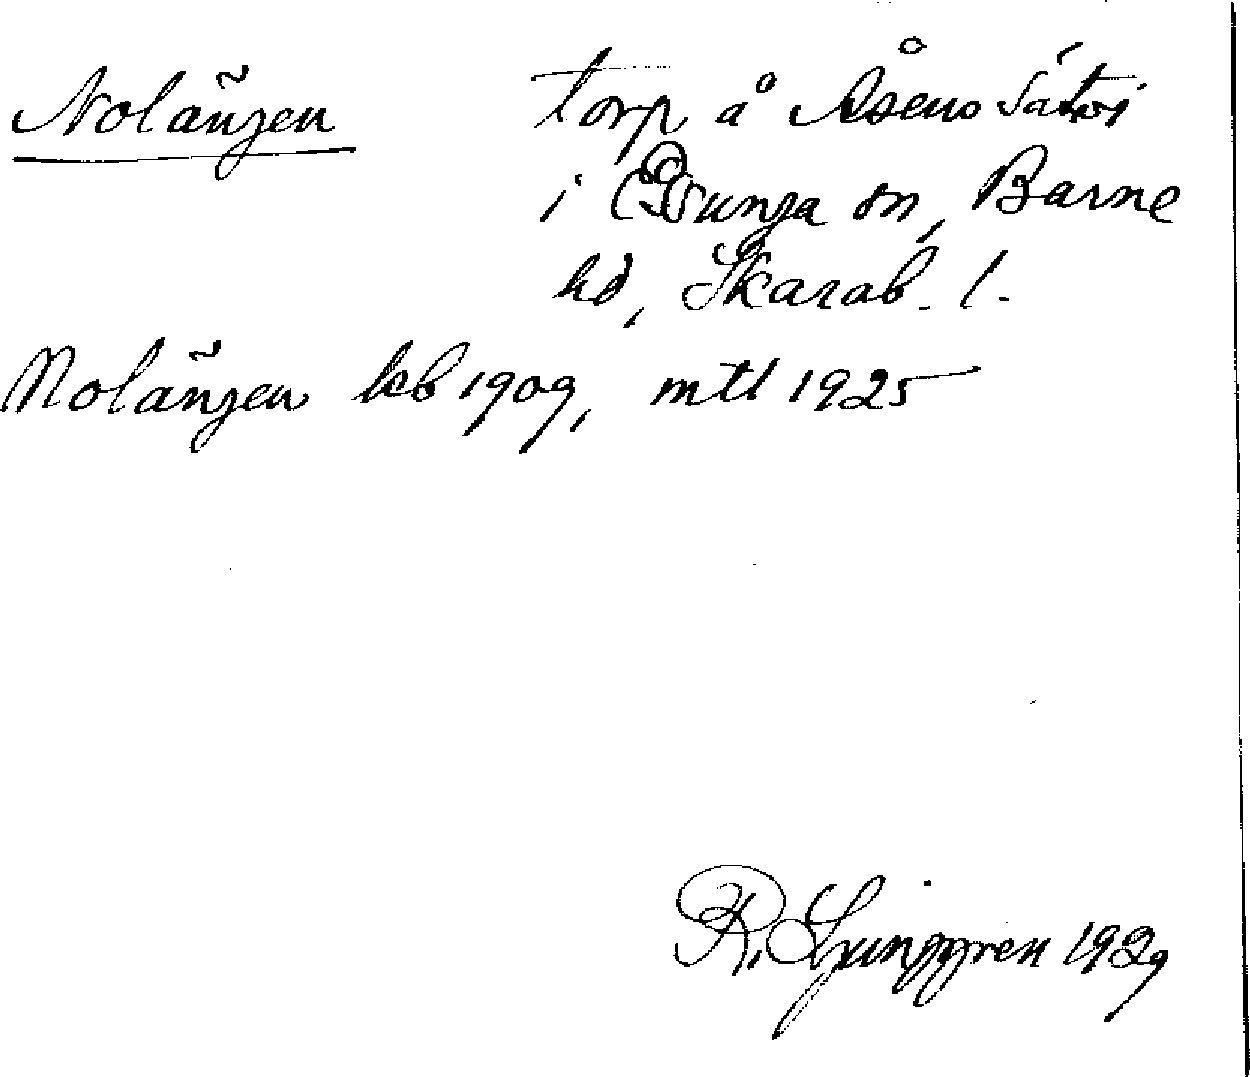 Nolängen torp å Åsens säteri
i Tunga sn, Barne
hd, Skarab. l.
Nolängen kb 1909, mtl 1925
R. Ljunggren 1929